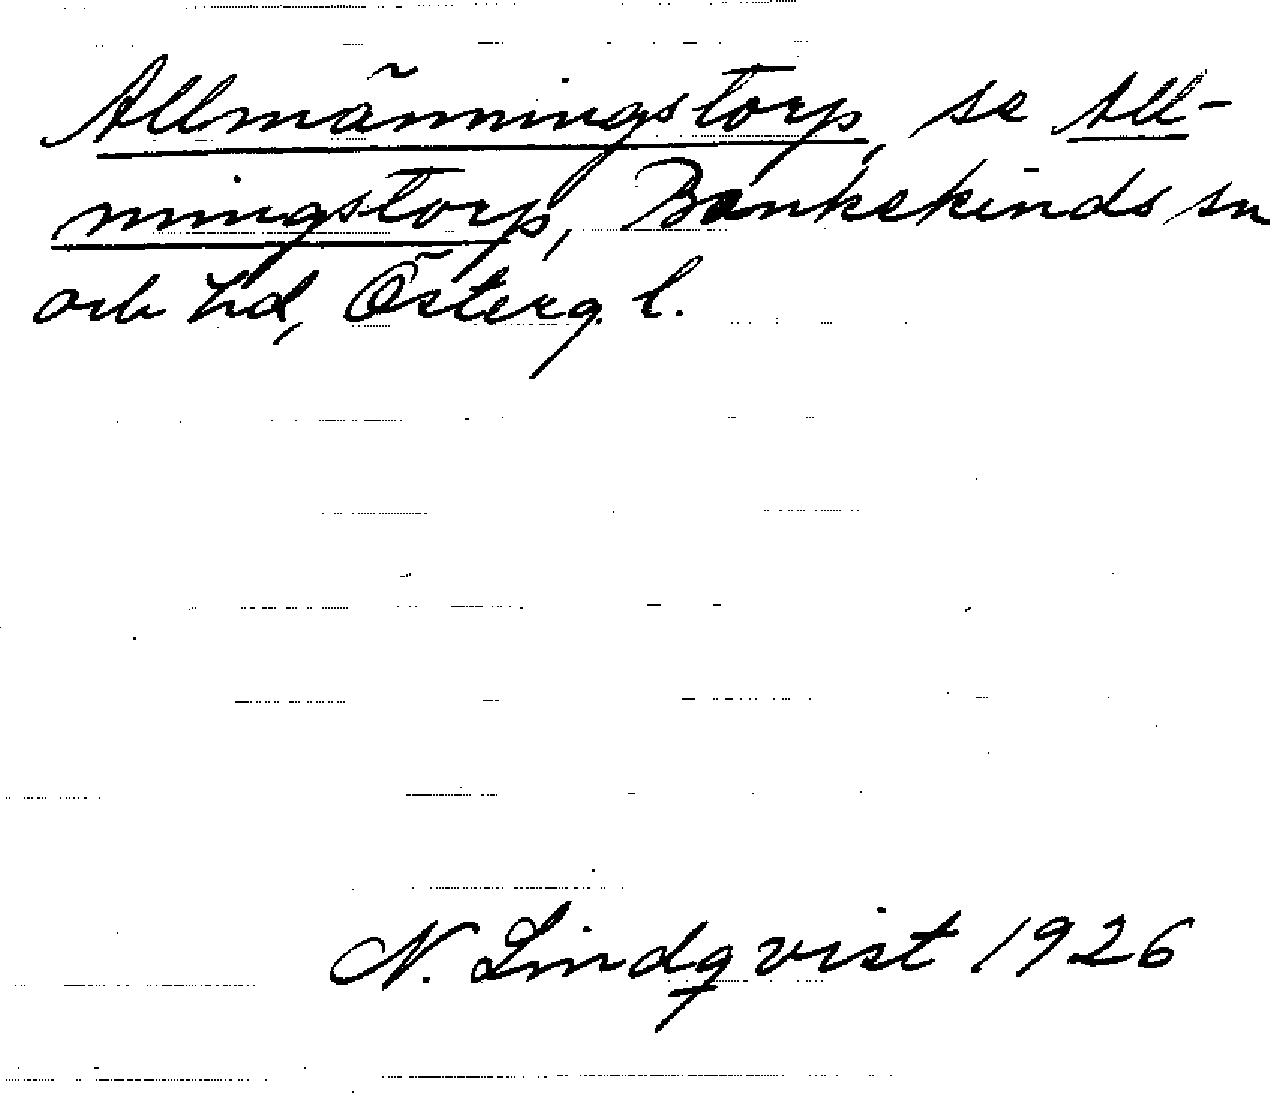 Allmänningstorp, se All-
mningstorp, Bankekinds sn
och hd, Österg. l.
N. Lindqvist 1926